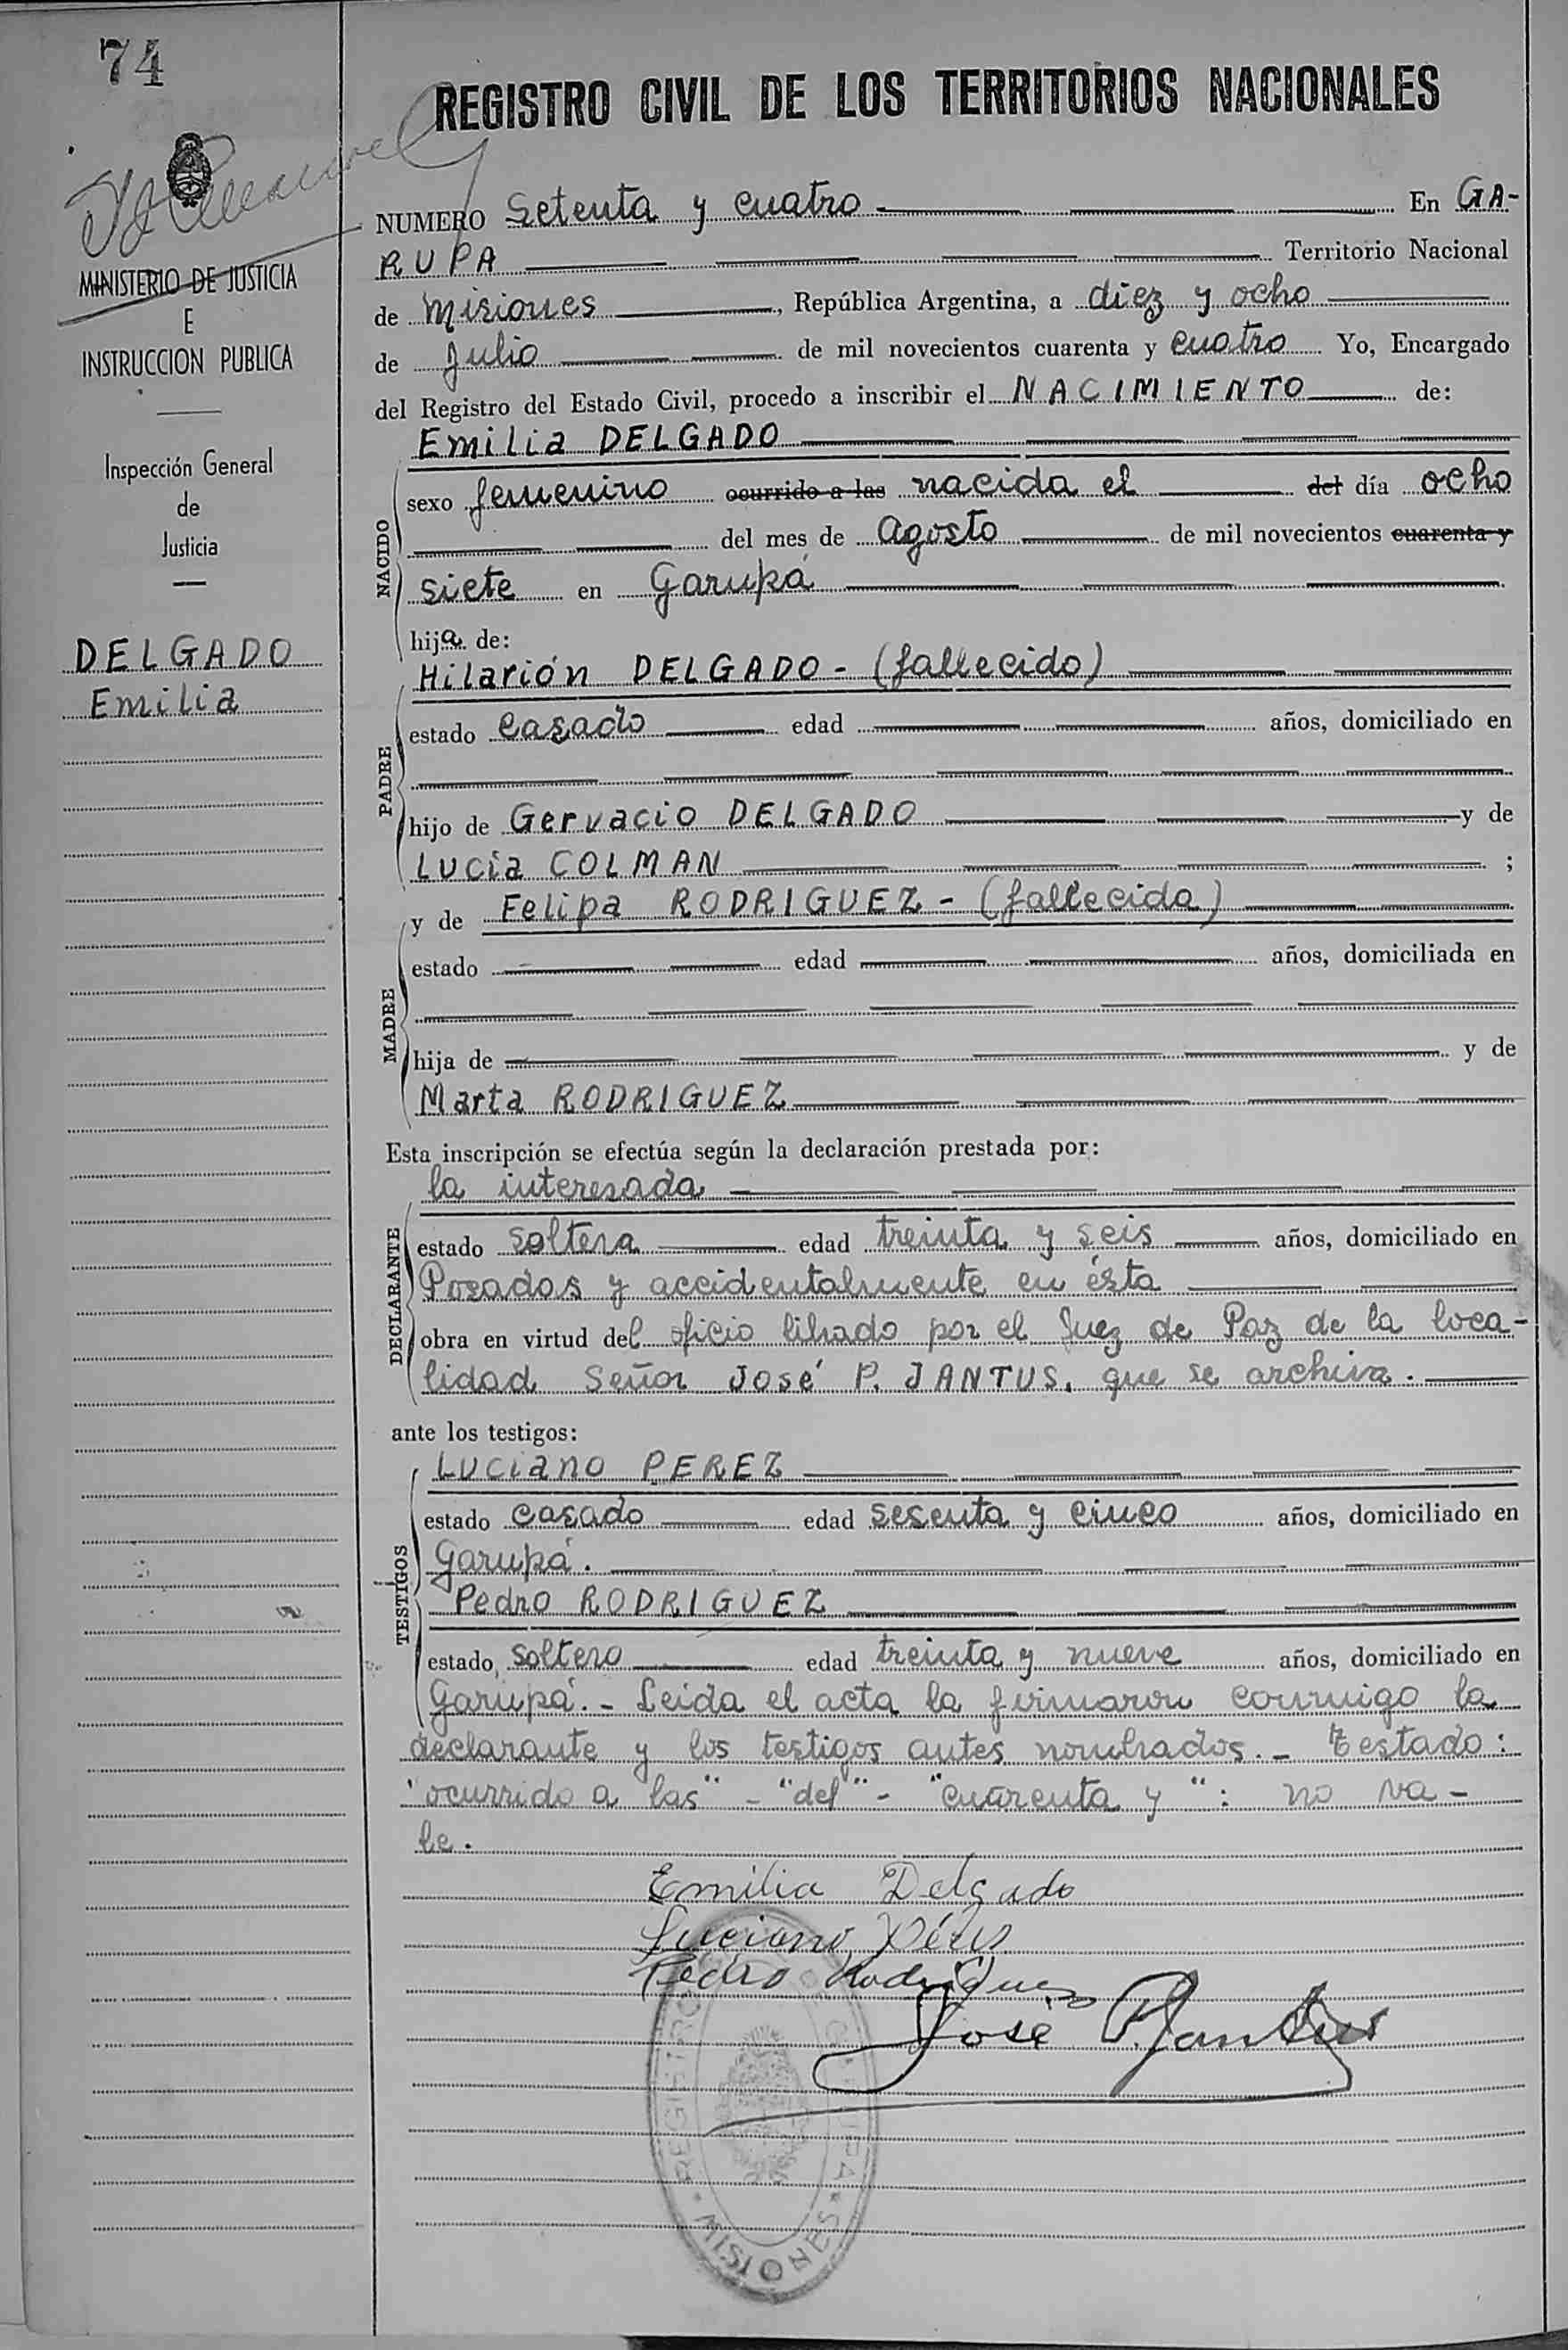 74
REGISTRO CIVIL DE LOS TERRITORIOS NACIONALES
MINISTERIO DE JUSTICIA
E
INSTRUCCION PUBLICA
Inspección General
de
Justicia
DELGADO
Emilia
NUMERO Setenta y cuatro En GA-
RUPA Territorio Nacional
de Misiones, República Argentina, a diez y ocho
de Julio de mil novecientos cuarenta y cuatro Yo, Encargado
del Registro del Estado Civil, procedo a inscribir el NACIMIENTO de:
Emilia DELGADO
NACIDO
sexo femenino ocurrido a las nacida el del día ocho
del mes de Agosto de mil novecientos cuarenta y
siete en Garupá
hija de:
Hilarión DELGADO - (fallecido)
PADRE
estado casado edad años, domiciliado en
hijo de Gervacio DELGADO y de
Lucía COLMAN ;
y de Felipa RODRIGUEZ - (fallecida)
MADRE
estado edad años, domiciliada en
hija de y de
Marta RODRIGUEZ
Esta inscripción se efectúa según la declaración prestada por:
la interesada
DECLARANTE
estado soltera edad treinta y seis años, domiciliado en
Posadas y accidentalmente en ésta
obra en virtud del oficio librado por el Juez de Paz de la loca-
lidad Señor José P. JANTUS, que se archiva.
ante los testigos:
Luciano PEREZ
TESTIGOS
estado casado edad sesenta y cinco años, domiciliado en
Garupá.
Pedro RODRIGUEZ
estado soltero edad treinta y nueve años, domiciliado en
Garupá. - Leída el acta la firmaron conmigo la
declarante y los testigos antes nombrados. - Testado:
"ocurrido a las" - "del" - "cuarenta y": no va-
le.
Emilia Delgado
Luciano Pérez
Pedro Rodriguez
José P. Jantus
REGISTRO
GARUPA
MISIONES